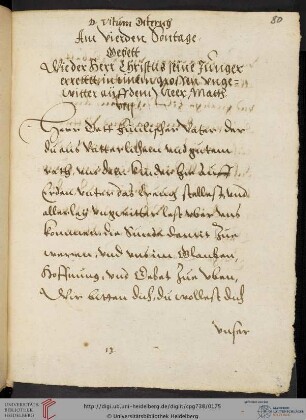 80
D. Vitum Diterich
Am Vierden Sontage
Gebett
Wie der Herr Christus seine Junger
errettet in einem grossen unge-
witter auff dem Meer, Matth.
VIII.
Herr Gott himlischer Vater, der
du aus Vatterlichem und gutem
rath, uns dein Kinder hie auff
Erden unter das Creutz stellest und
allerlay ungewitter lest uber uns
kommen, die Sunde damit zue
weren, und uns im Glauben,
Hoffnung, und Gebet zue üben,
Wir bitten dich, du wollest dich
unser
13
UNIVERSITÄTS-
BIBLIOTHEK
HEIDELBERG
http://digi.ub.uni-heidelberg.de/diglit/cpg738/0175
© Universitätsbibliothek Heidelberg